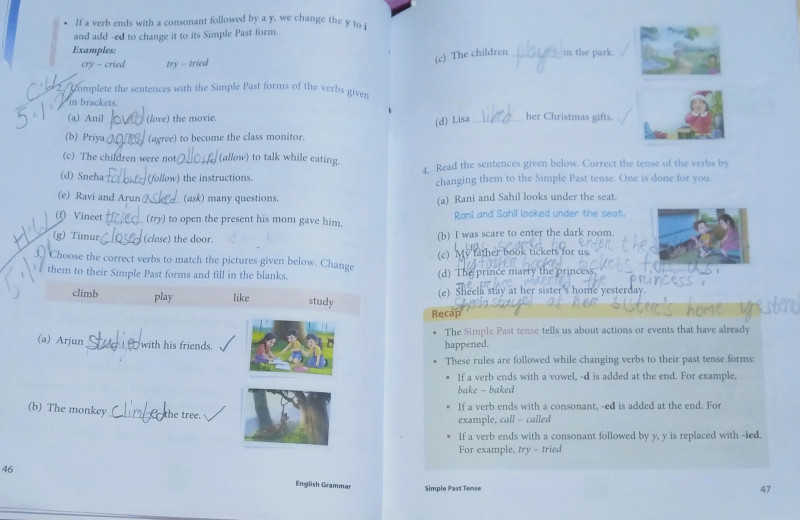 • If a verb ends with a consonant followed by a y, we change the y to i
and add -ed to change it to its Simple Past form.
Examples:
cry – cried try – tried
Complete the sentences with the Simple Past forms of the verbs given
in brackets.
(a) Anil loved (love) the movie.
(b) Priya agreed (agree) to become the class monitor.
(c) The children were not allowed (allow) to talk while eating.
(d) Sneha followed (follow) the instructions.
(e) Ravi and Arun asked (ask) many questions.
(f) Vineet tried (try) to open the present his mom gave him.
(g) Timur closed (close) the door.
3. Choose the correct verbs to match the pictures given below. Change
them to their Simple Past forms and fill in the blanks.
climb play like study
(a) Arjun studied with his friends.
(b) The monkey climbed the tree.
46
English Grammar
(c) The children played in the park.
(d) Lisa liked her Christmas gifts.
4. Read the sentences given below. Correct the tense of the verbs by
changing them to the Simple Past tense. One is done for you.
(a) Rani and Sahil looks under the seat.
Rani and Sahil looked under the seat.
(b) I was scare to enter the dark room.
I was scared to enter the
(c) My father book tickets for us.
My father booked tickets for us.
(d) The prince marry the princess.
The prince married the princess.
(e) Sheela stay at her sister's home yesterday.
Sheela stayed at her sister's home yesterd
Recap
• The Simple Past tense tells us about actions or events that have already
happened.
• These rules are followed while changing verbs to their past tense forms:
• If a verb ends with a vowel, -d is added at the end. For example,
bake – baked
• If a verb ends with a consonant, -ed is added at the end. For
example, call – called
• If a verb ends with a consonant followed by y, y is replaced with -ied.
For example, try – tried
Simple Past Tense
47